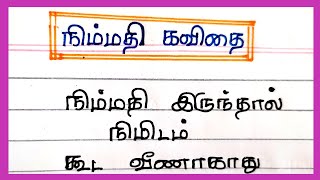 நிம்மதி கவிதை
நிம்மதி இருந்தால்
நிமிடம்
கூட வீணாகாது